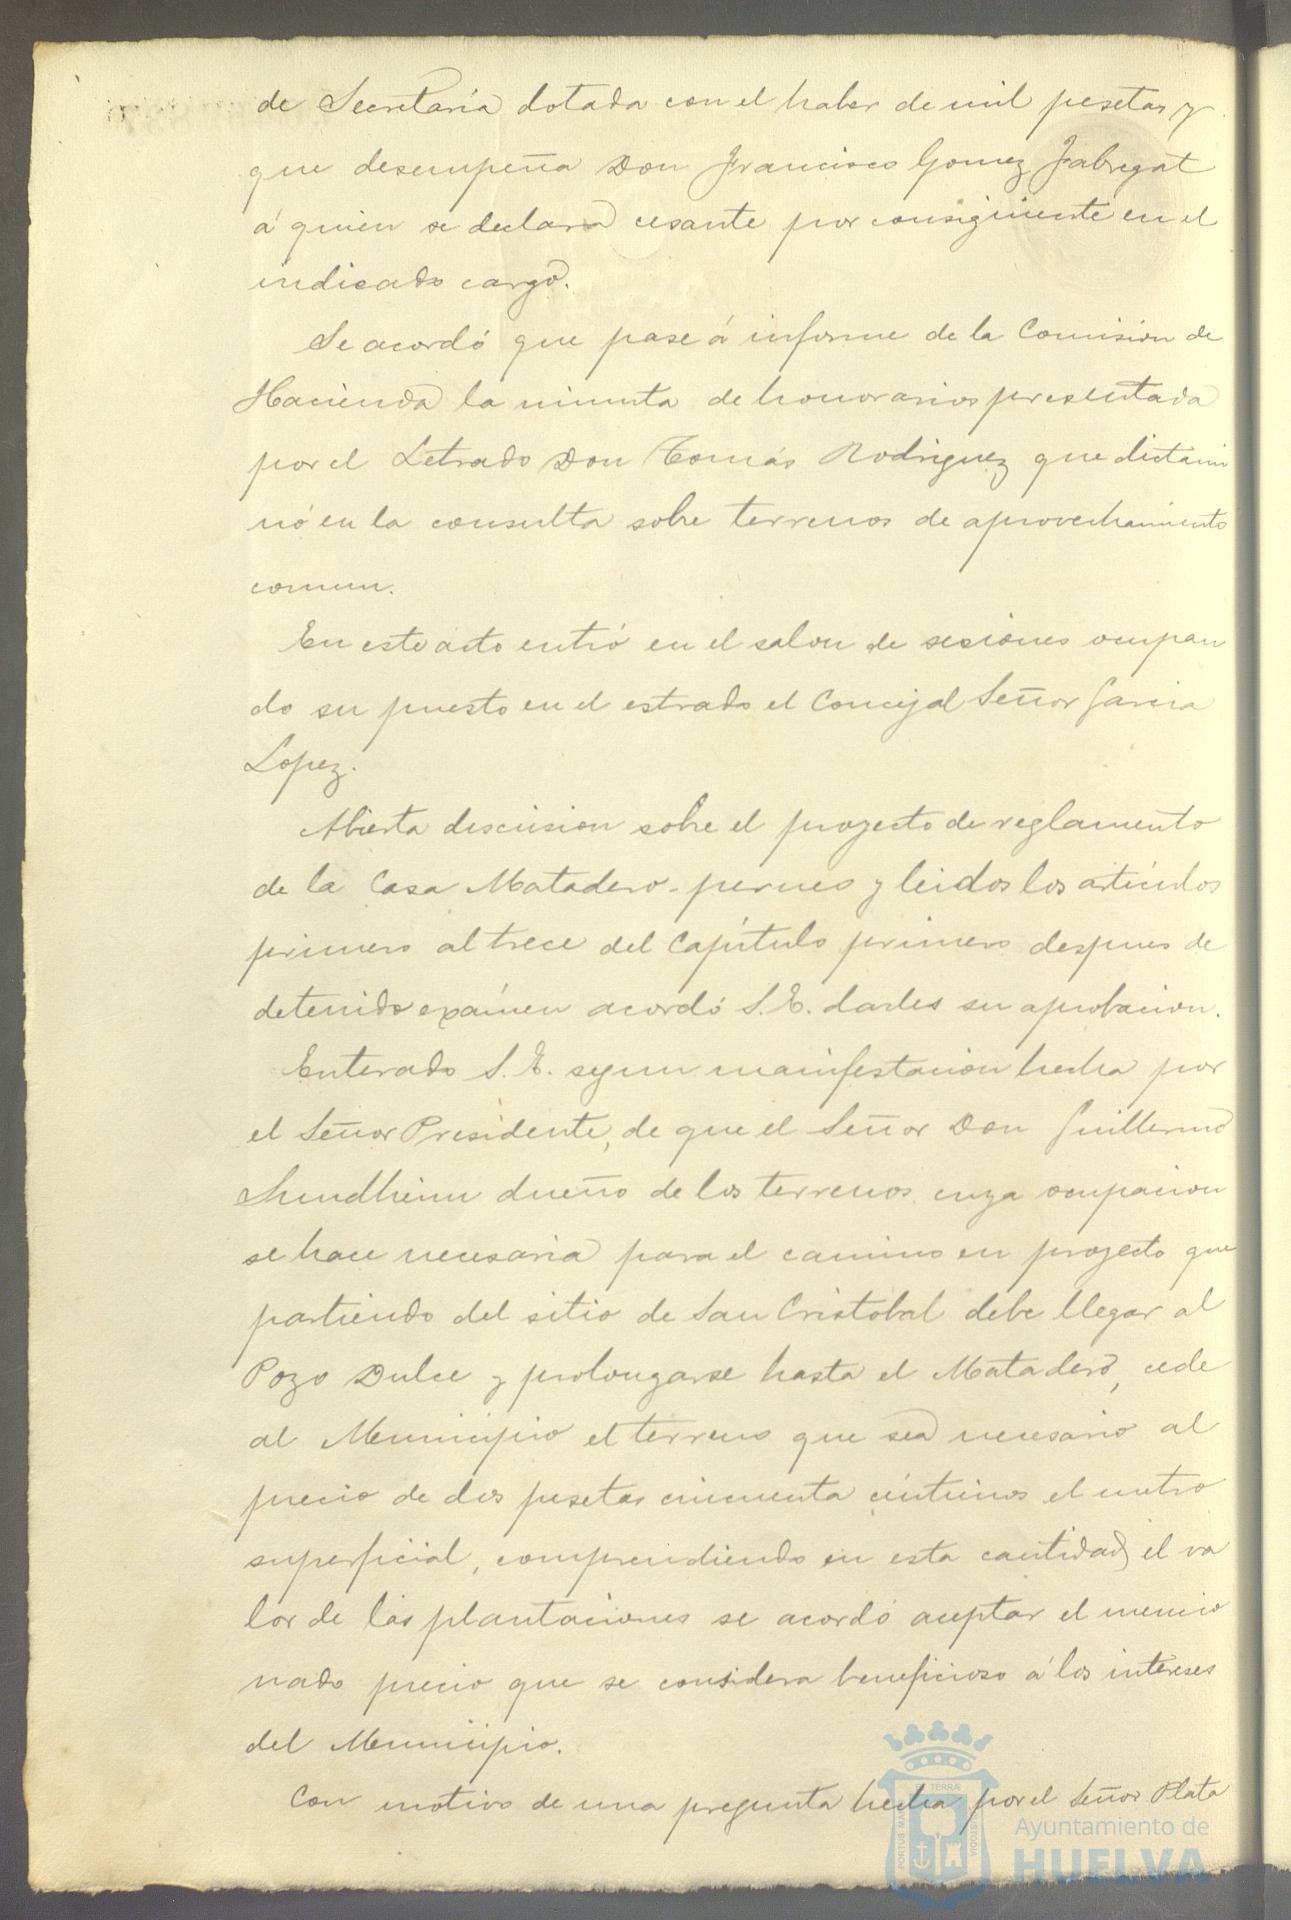 de Secretaría dotada con el haber de mil pesetas y
que desempeña Don Francisco Gomez Fabregat
á quien se declara cesante por consiguiente en el
indicado cargo.
Se acordó que pase á informe de la Comision de
Hacienda la minuta de honorarios presentada
por el Letrado Don Tomás Rodriguez que dictami
nó en la consulta sobre terrenos de aprovechamiento
comun.
En este acto entró en el salon de sesiones ocupan
do su puesto en el estrado el Concejal Señor Garcia
Lopez.
Abierta discusion sobre el proyecto de reglamento
de la Casa Matadero y leidos los artículos
primero al trece del Capítulo primero despues de
detenido exámen acordó S. E. darles su aprobacion.
Enterado S. E. segun manifestacion hecha por
el Señor Presidente, de que el Señor Don Guillermo
Sundheim dueño de los terrenos cuya ocupacion
se hace necesaria para el camino en proyecto que
partiendo del sitio de San Cristobal debe llegar al
Pozo Dulce y prolongarse hasta el Matadero, cede
al Municipio el terreno que sea necesario al
precio de dos pesetas cincuenta céntimos el metro
superficial, comprendiendo en esta cantidad el va
lor de las plantaciones se acordó aceptar el mencio
nado precio que se considera beneficioso á los intereses
del Municipio.
Con motivo de una pregunta hecha por el Señor Plata
Ayuntamiento de
HUELVA